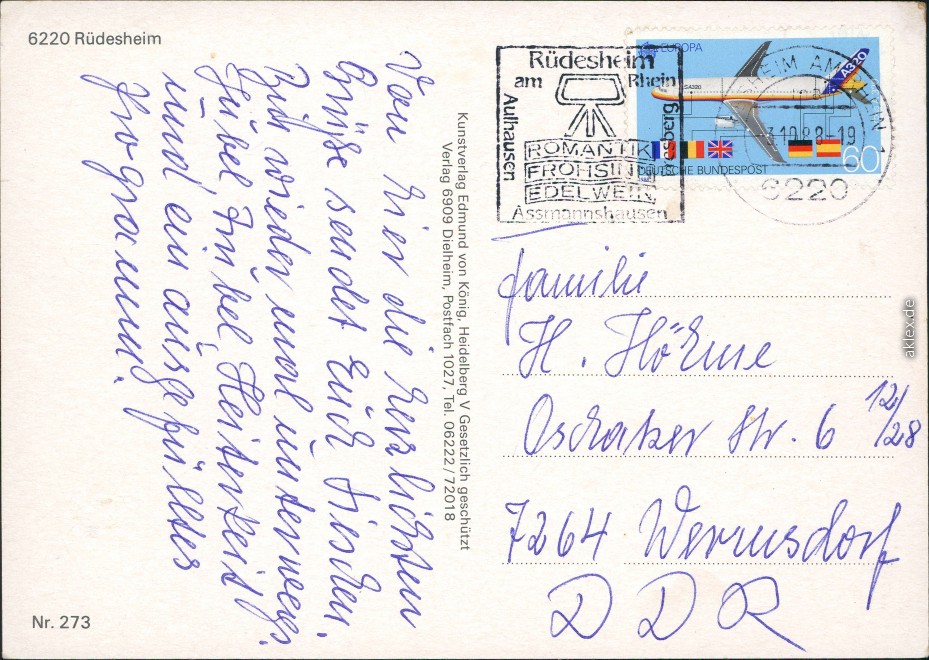 6220 Rüdesheim
Von hier die herzlichsten
Grüße sendet Euch Lieschen.
Bin wieder mal unterwegs.
Jubel, Trubel, Heiterkeit
und ein ausgefülltes
Programm.
Nr. 273
Kunstverlag Edmund von König, Heidelberg V Gesetzlich geschützt
Verlag 6909 Dielheim, Postfach 1027, Tel. 06222/72018
Rüdesheim
am Rhein
Aulhausen
ROMANTIK
FROHSINN
EDELWEIN
Assmannshausen
EUROPA
A320
DEUTSCHE BUNDESPOST
60
HEIM AM RHEIN 1
10.88-19
6220
Familie
H.
Oschatzer Str. 6 12/28
7264 Wermsdorf
DDR
aklex.de